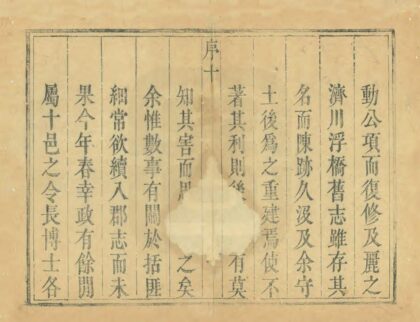 動公項而復修及麗之
濟川浮橋舊志雖存其
名而陳跡久汲及余守
土後爲之重建焉使不
著其利則後有莫
序十
知其害而之矣
余惟數事有關於括匪
細常欲續入郡志而未
果今年春幸政有餘閒
屬十邑之令長博士各